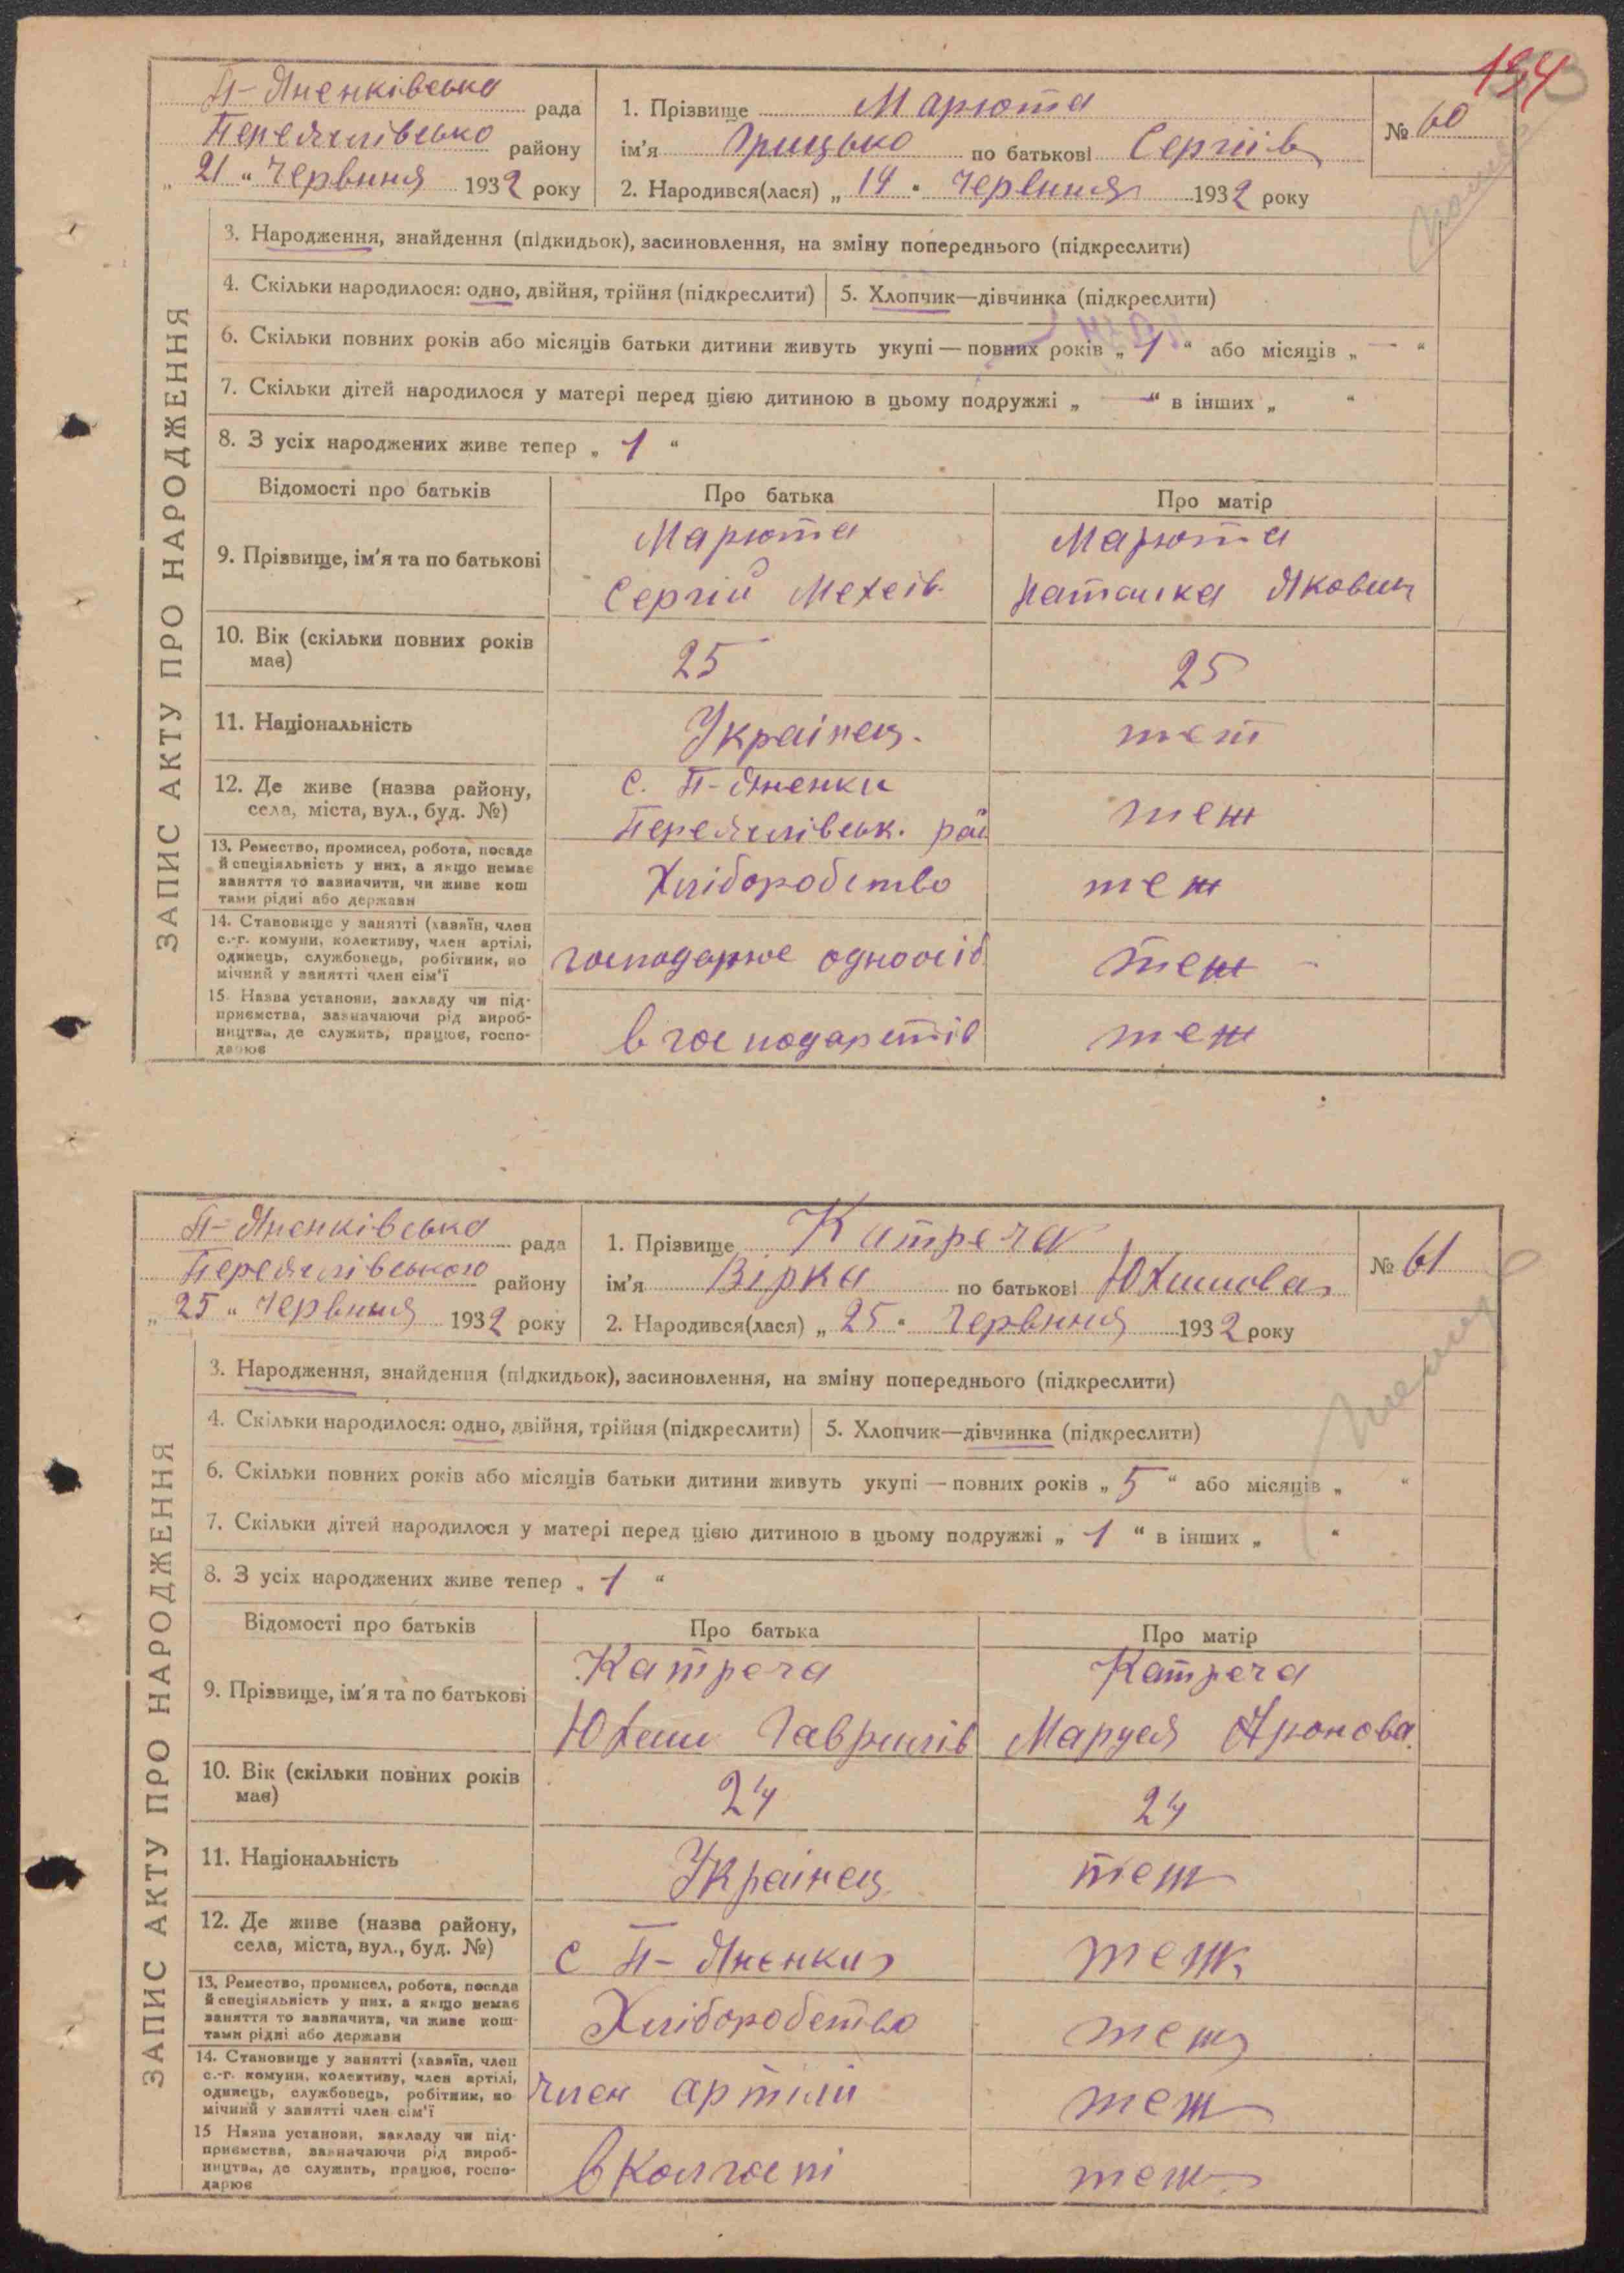 134
П-Яненківська рада
Переяслівсько району
„ 21 “ Червиня 1932 року
1. Прізвище Марюта
ім’я Грицько по батькові Сергіів
2. Народився(лася) „ 14 “ Червиня 1932 року
№ 60
ЗАПИС АКТУ ПРО НАРОДЖЕННЯ
3. Народження, знайдення (підкидьок), засиновлення, на зміну попереднього (підкреслити)
4. Скільки народилося: одно, двійня, трійня (підкреслити)
5. Хлопчик—дівчинка (підкреслити)
6. Скільки повних років або місяців батьки дитини живуть укупі — повних років „ 1 “ або місяців „ — “
7. Скільки дітей народилося у матері перед цією дитиною в цьому подружжі „ — “ в інших „ “
8. З усіх народжених живе тепер „ 1 “
Відомості про батьків
Про батька
Про матір
9. Прізвище, ім’я та по батькові
Марюта
Сергій Мехеів.
Марюта
Наталка Яковин
10. Вік (скільки повних років
має)
25
25
11. Національність
Украінец.
теж
12. Де живе (назва району,
села, міста, вул., буд. №)
с. П-Яненки
Переяслівськ. рай
теж
13. Ремество, промисел, робота, посада
й спеціяльність у них, а якщо немає
заняття то зазначити, чи живе кош
тами рідні або держави
Хліборобство
теж
14. Становище у занятті (хазяїн, член
с.-г. комуни, колективу, член артілі,
одинець, службовець, робітник, по
мічний у занятті член сім’ї
господарює одноосіб
теж
15 Назва установи, закладу чи під-
приємства, зазначаючи рід вироб-
ництва, де служить, працює, госпо-
дарює
в господарстві
теж
П-Яненківська рада
Переяслівського району
„ 25 “ Червиня 1932 року
1. Прізвище Катреча
ім’я Вірка по батькові Юхимова
2. Народився(лася) „ 25 “ Червиня 1932 року
№ 61
ЗАПИС АКТУ ПРО НАРОДЖЕННЯ
3. Народження, знайдення (підкидьок), засиновлення, на зміну попереднього (підкреслити)
4. Скільки народилося: одно, двійня, трійня (підкреслити)
5. Хлопчик—дівчинка (підкреслити)
6. Скільки повних років або місяців батьки дитини живуть укупі — повних років „ 5 “ або місяців „ “
7. Скільки дітей народилося у матері перед цією дитиною в цьому подружжі „ 1 “ в інших „ “
8. З усіх народжених живе тепер „ 1 “
Відомості про батьків
Про батька
Про матір
9. Прізвище, ім’я та по батькові
Катреча
Юхим Гаврилів
Катреча
Маруся Аронова
10. Вік (скільки повних років
має)
24
24
11. Національність
Украінец
теж
12. Де живе (назва району,
села, міста, вул., буд. №)
с П-Яненки
теж
13. Ремество, промисел, робота, посада
й спеціяльність у них, а якщо немає
заняття то зазначити, чи живе кош-
тами рідні або держави
Хліборобство
теж
14. Становище у занятті (хазяїн, член
с.-г. комуни, колективу, член артілі,
одинець, службовець, робітник, по
мічний у занятті член сім’ї
член артіли
теж
15 Назва установи, закладу чи під-
приємства, зазначаючи рід вироб-
ництва, де служить, працює, госпо-
дарює
в Колгоспі
теж